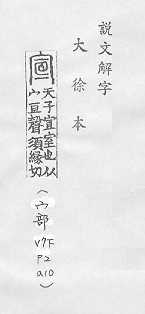 説文解字
大徐本
宣
天子宣室也从
宀亘聲須緣切
(宀部
V7F
P2
a10)